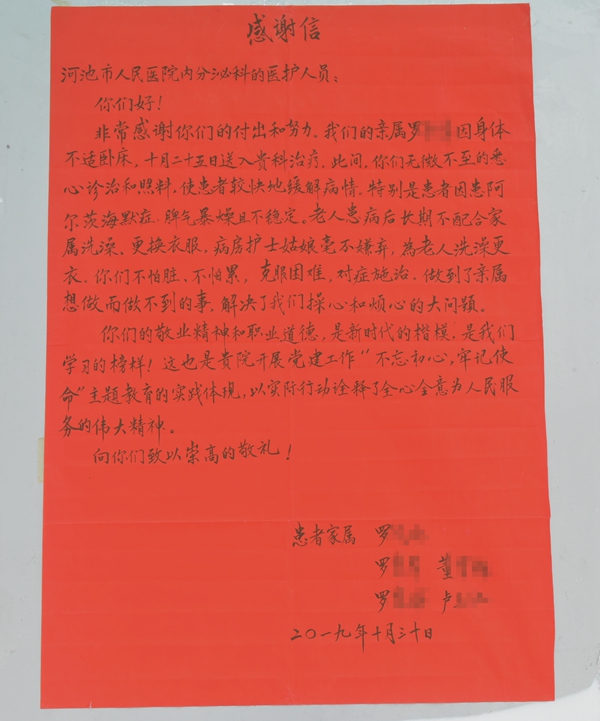 感谢信
河池市人民医院内分泌科的医护人员：
你们好！
非常感谢你们的付出和努力。我们的亲属罗因身体
不适卧床，十月二十五日送入贵科治疗。此间，你们无微不至的悉
心诊治和照料，使患者较快地缓解病情。特别是患者因患阿
尔茨海默症，脾气暴燥且不稳定。老人患病后长期不配合家
属洗澡、更换衣服，病房护士姑娘毫不嫌弃，為老人洗澡更
衣。你们不怕脏，不怕累，克服困难，对症施治。做到了亲属
想做而做不到的事，解决了我们操心和烦心的大问题。
你们的敬业精神和职业道德，是新时代的楷模，是我们
学习的榜样！这也是貴院开展党建工作“不忘初心，牢记使
命”主题教育的实践体现，以实际行动诠释了全心全意为人民服
务的伟大精神。
向你们致以崇高的敬礼！
患者家属 罗
罗 董
罗 卢
二〇一九年十月三十日